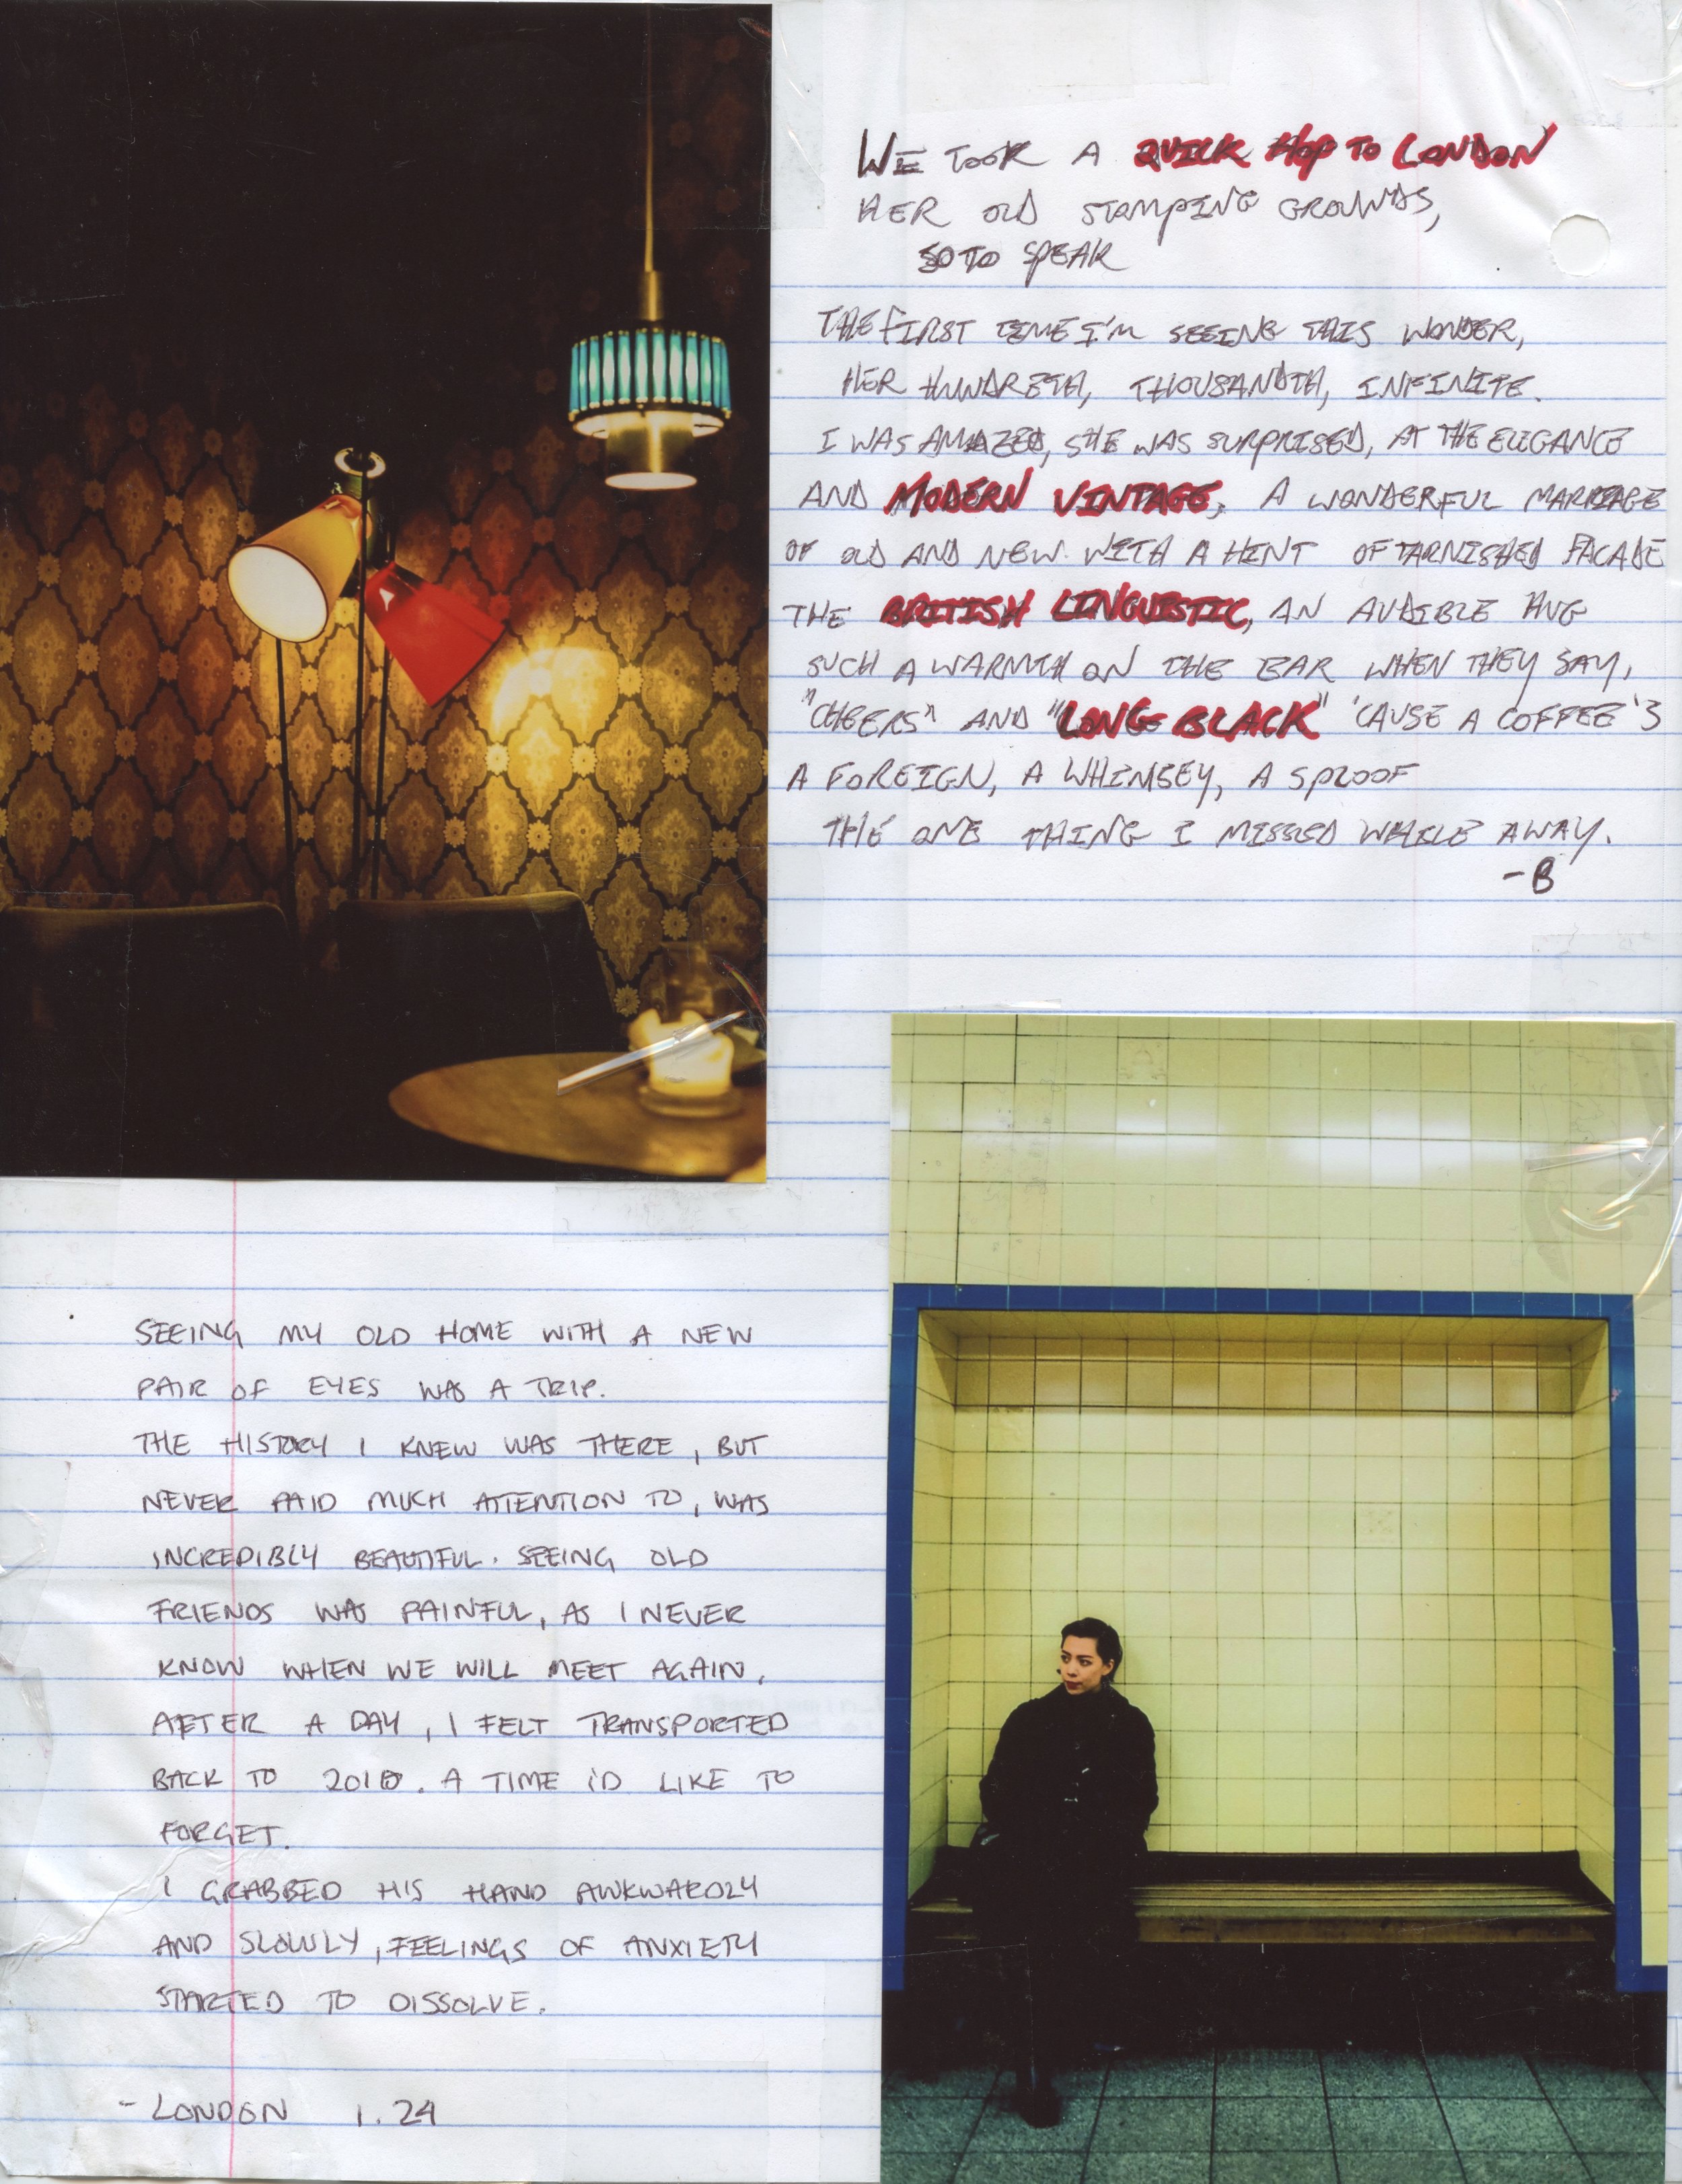 WE TOOK A QUICK HOP TO LONDON
HER OLD STAMPING GROUNDS,
SO TO SPEAK
THE FIRST TIME I'M SEEING THIS WONDER,
HER HUNDRETH, THOUSANDTH, INFINITE.
I WAS AMAZED, SHE WAS SURPRISED, AT THE ELEGANCE
AND MODERN VINTAGE, A WONDERFUL MARRIAGE
OF OLD AND NEW. WITH A HINT OF TARNISHED FACADE
THE BRITISH LINGUISTIC, AN AUDIBLE HUG
SUCH A WARMTH ON THE EAR WHEN THEY SAY,
"CHEERS" AND "LONG BLACK" 'CAUSE A COFFEE'S
A FOREIGN, A WHIMSEY, A SPOOF
THE ONE THING I MISSED WHILE AWAY.
-B
SEEING MY OLD HOME WITH A NEW
PAIR OF EYES WAS A TRIP.
THE HISTORY I KNEW WAS THERE, BUT
NEVER PAID MUCH ATTENTION TO, WAS
INCREDIBLY BEAUTIFUL. SEEING OLD
FRIENDS WAS PAINFUL, AS I NEVER
KNOW WHEN WE WILL MEET AGAIN.
AFTER A DAY, I FELT TRANSPORTED
BACK TO . A TIME I'D LIKE TO
FORGET.
I GRABBED HIS HAND AWKWARDLY
AND SLOWLY, FEELINGS OF ANXIETY
STARTED TO DISSOLVE.
- LONDON 1.24